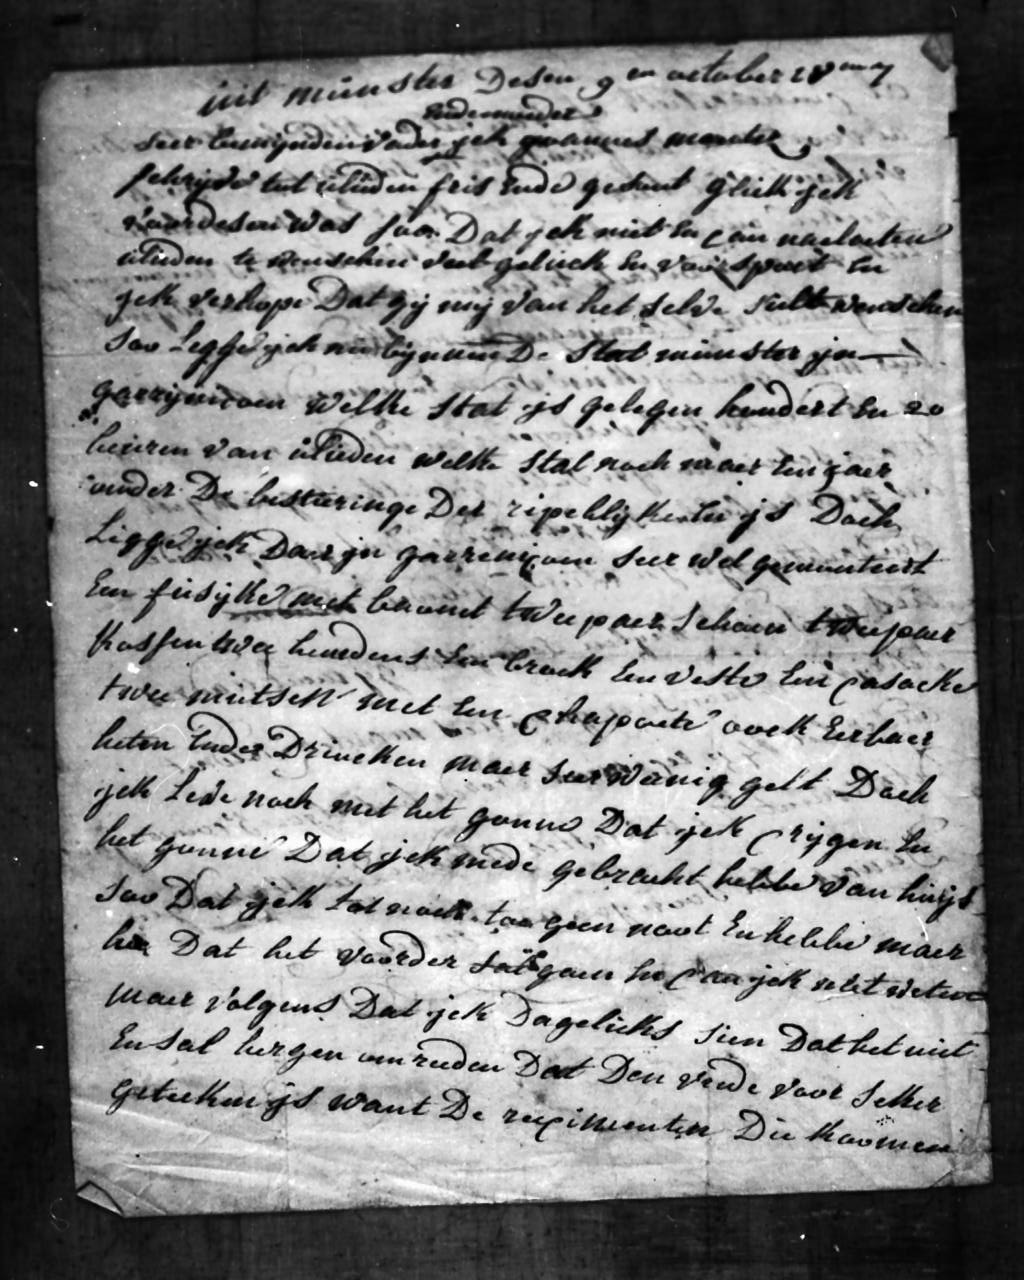 uit munster Desen 9 en october
ende moeder
seer beminden vader jck joannes
schrijve tot ulieden fris ende gesont gelick jck
voordesen was soo Dat jck niet En can naelaeten
ulieden te wenschen veel geluck En voorspoet En
jck verhope Dat gij mij van het selve sult wenschen
soo Legge jck nu bijnnen De stat munster jn
garnijsoen welke stat ijs gelegen hondert En 20
heuren van ulieden welke stat noch maer Een jaer
onder De besturinge Der ripeblijke En ijs Doch
Ligge jck Daer jn garnisoen seer wel gemonteert
Een fusijke met baionet twee paer schoen twee paer
kossen twee hemdens Een broek Een veste Een casacke
twee mutsen met Een chapoote oock Eerbaer
heten Ende Drincken maer seer wanig gelt Doch
jck Leve noch met het gonne Dat jck crijgen En
het gonne Dat jck mede gebracht hebbe van huijs
soo Dat jck tot noch toe geen noot En hebbe maer
hoe Dat het voorder sal gaen En can jck niet weten
maer volgens Dat jck Dagelicks sien Dat het niet
En sal bergen om reeden Dat Den vrede voor seker
geteeken ijs want De regimenten Die koomen